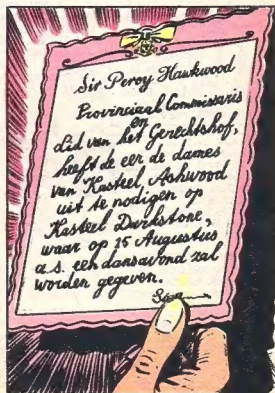 Sir Percy Hawkwood
Provinciaal Commissaris
en
Lid van het Gerechtshof,
heeft de eer de dames
van Kasteel Ashwood
uit te nodigen op
Kasteel Darkstone,
waar op 15 Augustus
a.s. een dansavond zal
worden gegeven.